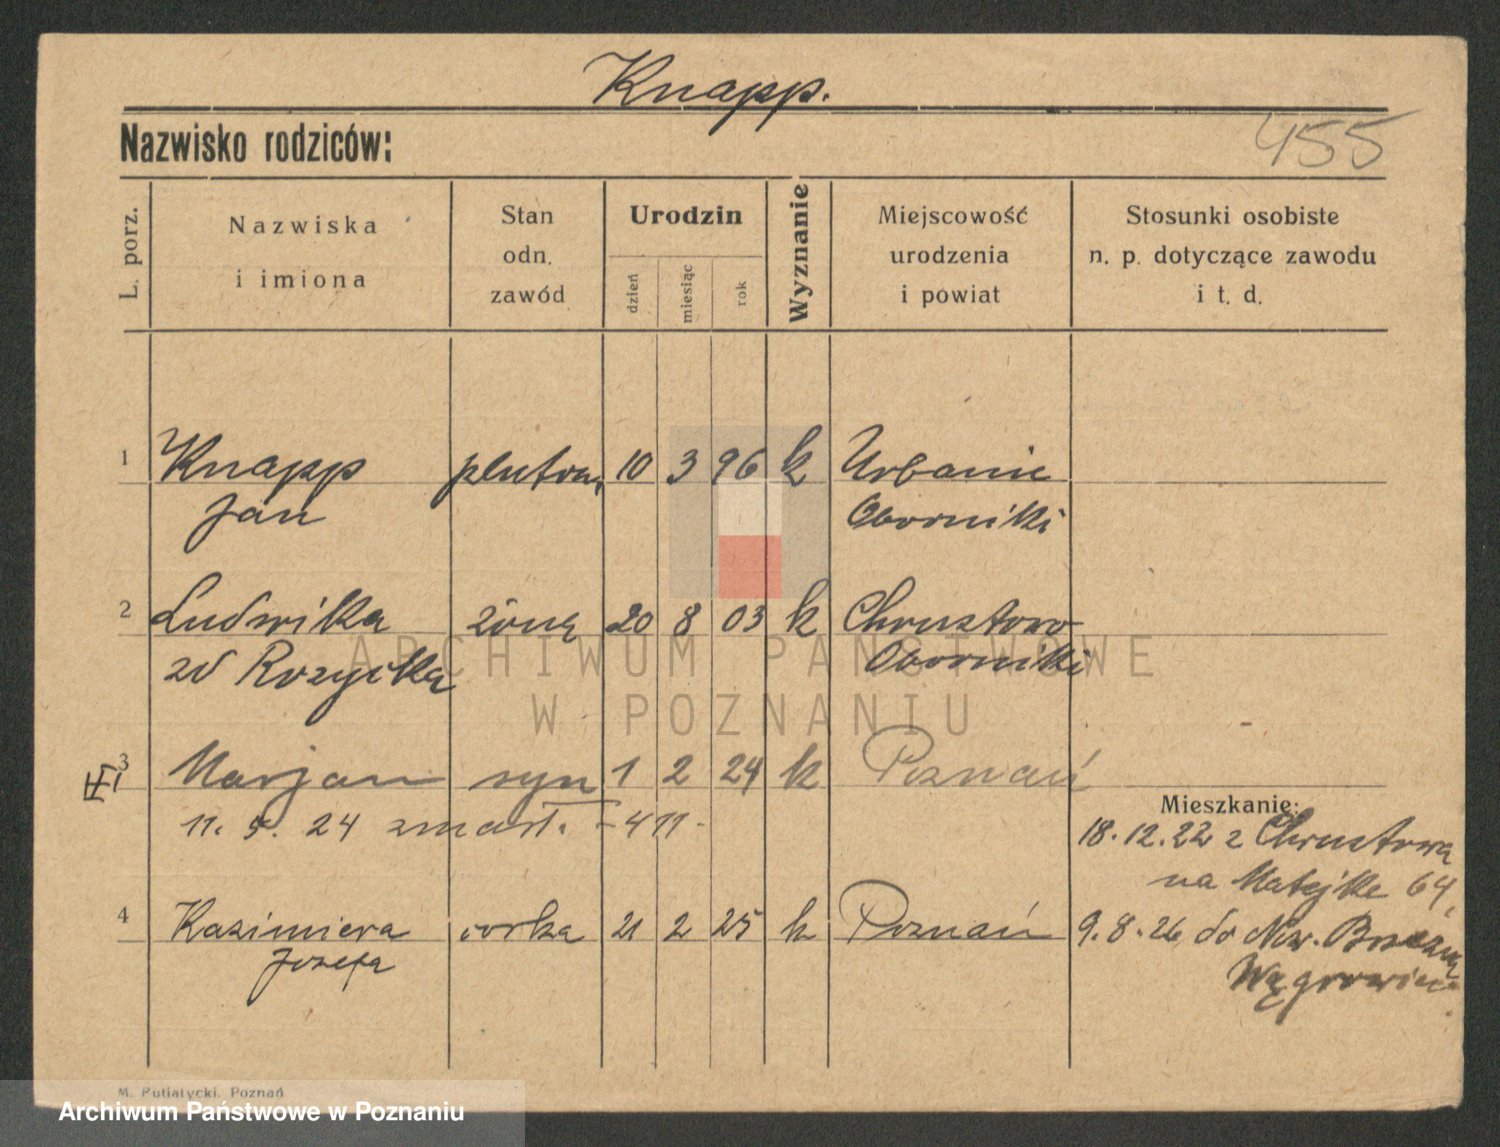 Knapp.
Nazwisko rodziców:
455
L. porz.
Nazwiska
i imiona
Stan
odn.
zawód
Urodzin
dzień
miesiąc
rok
Wyznanie
Miejscowość
urodzenia
i powiat
Stosunki osobiste
n. p. dotyczące zawodu
i t. d.
1 Knapp pluton. 10 3 96 k Urbanie
Jan Oborniki
2 Ludwika żona 20 8 03 k Chrustowo
zd Rozycka Oborniki
3 Marjan syn 1 2 24 k Poznań
11. 5. 24 zmarł. - 411 -
Mieszkanie:
18.12.22 z Chrustowa
na Matejki 64,
4 Kazimiera córka 21 2 25 k Poznań 9.8.26 do Now.
Józefa Wągrowiec
M. Putiatycki, Poznań
ARCHIWUM PAŃSTWOWE
W POZNANIU
Archiwum Państwowe w Poznaniu